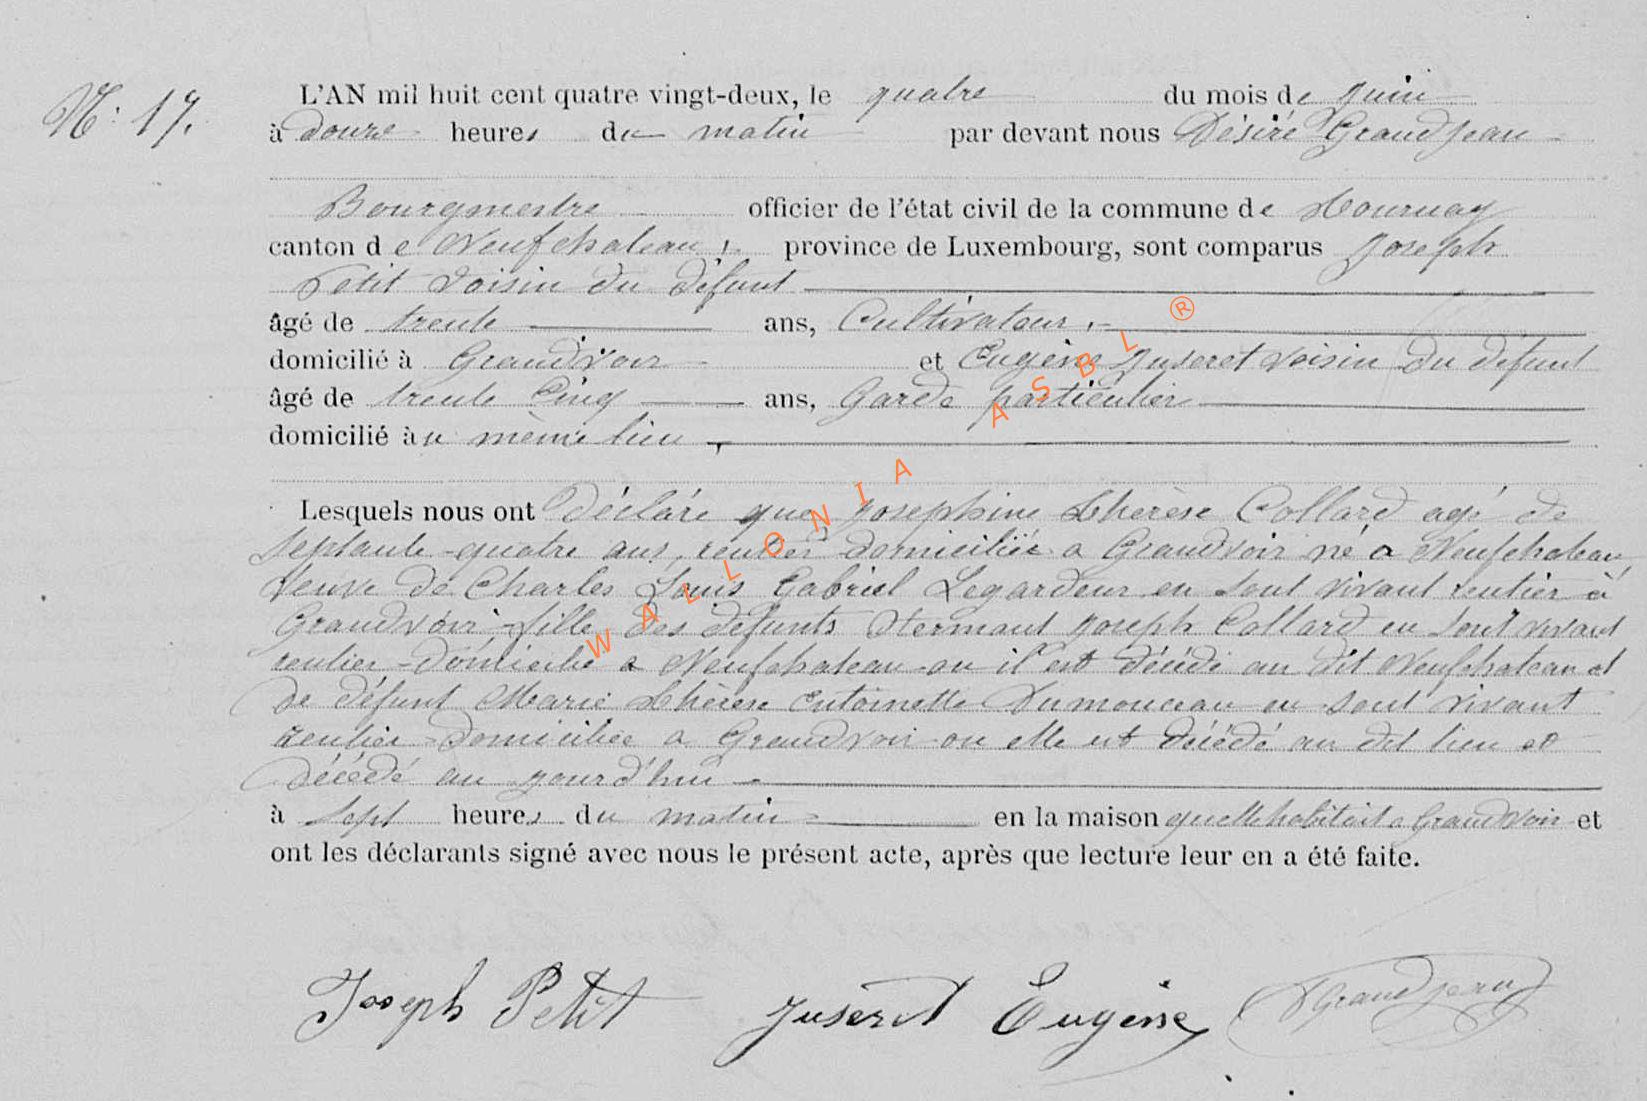 N: 17. L'AN mil huit cent quatre vingt-deux, le quatre du mois de juin
à douze heures du matin par devant nous Désiré Grandjean
Bourgmestre officier de l'état civil de la commune de Tournay
canton de Neufchateau, province de Luxembourg, sont comparus Joseph
Petit voisin du défunt
âgé de trente ans, Cultivateur,
domicilié à Grandvoir et Eugène Juseret voisin du défunt
âgé de trente cinq ans, Garde particulier
domicilié au même lieu,
Lesquels nous ont déclaré que Josephine Thérèse Collard agé de
septante-quatre ans, rentier domiciliée a Grandvoir né a Neufchateau,
veuve de Charles Louis Gabriel Legardeur en sont vivant rentier à
Grandvoir, fille des défunts Hermant Joseph Collard en sont vivant
rentier domicilié a Neufchateau ou il est décédé au dit Neufchateau et
de défunt Marie Thérèse Entoinette Dumonceau en sont vivant
rentier domiciliée a Grandvoir ou elle est décédé au dit lieu et
décédé au jourd'hui
à sept heures du matin en la maison quelle habitait a Grandvoir et
ont les déclarants signé avec nous le présent acte, après que lecture leur en a été faite.
Joseph Petit Juseret Eugène DGrandjean
WALLONIA ASBL ®